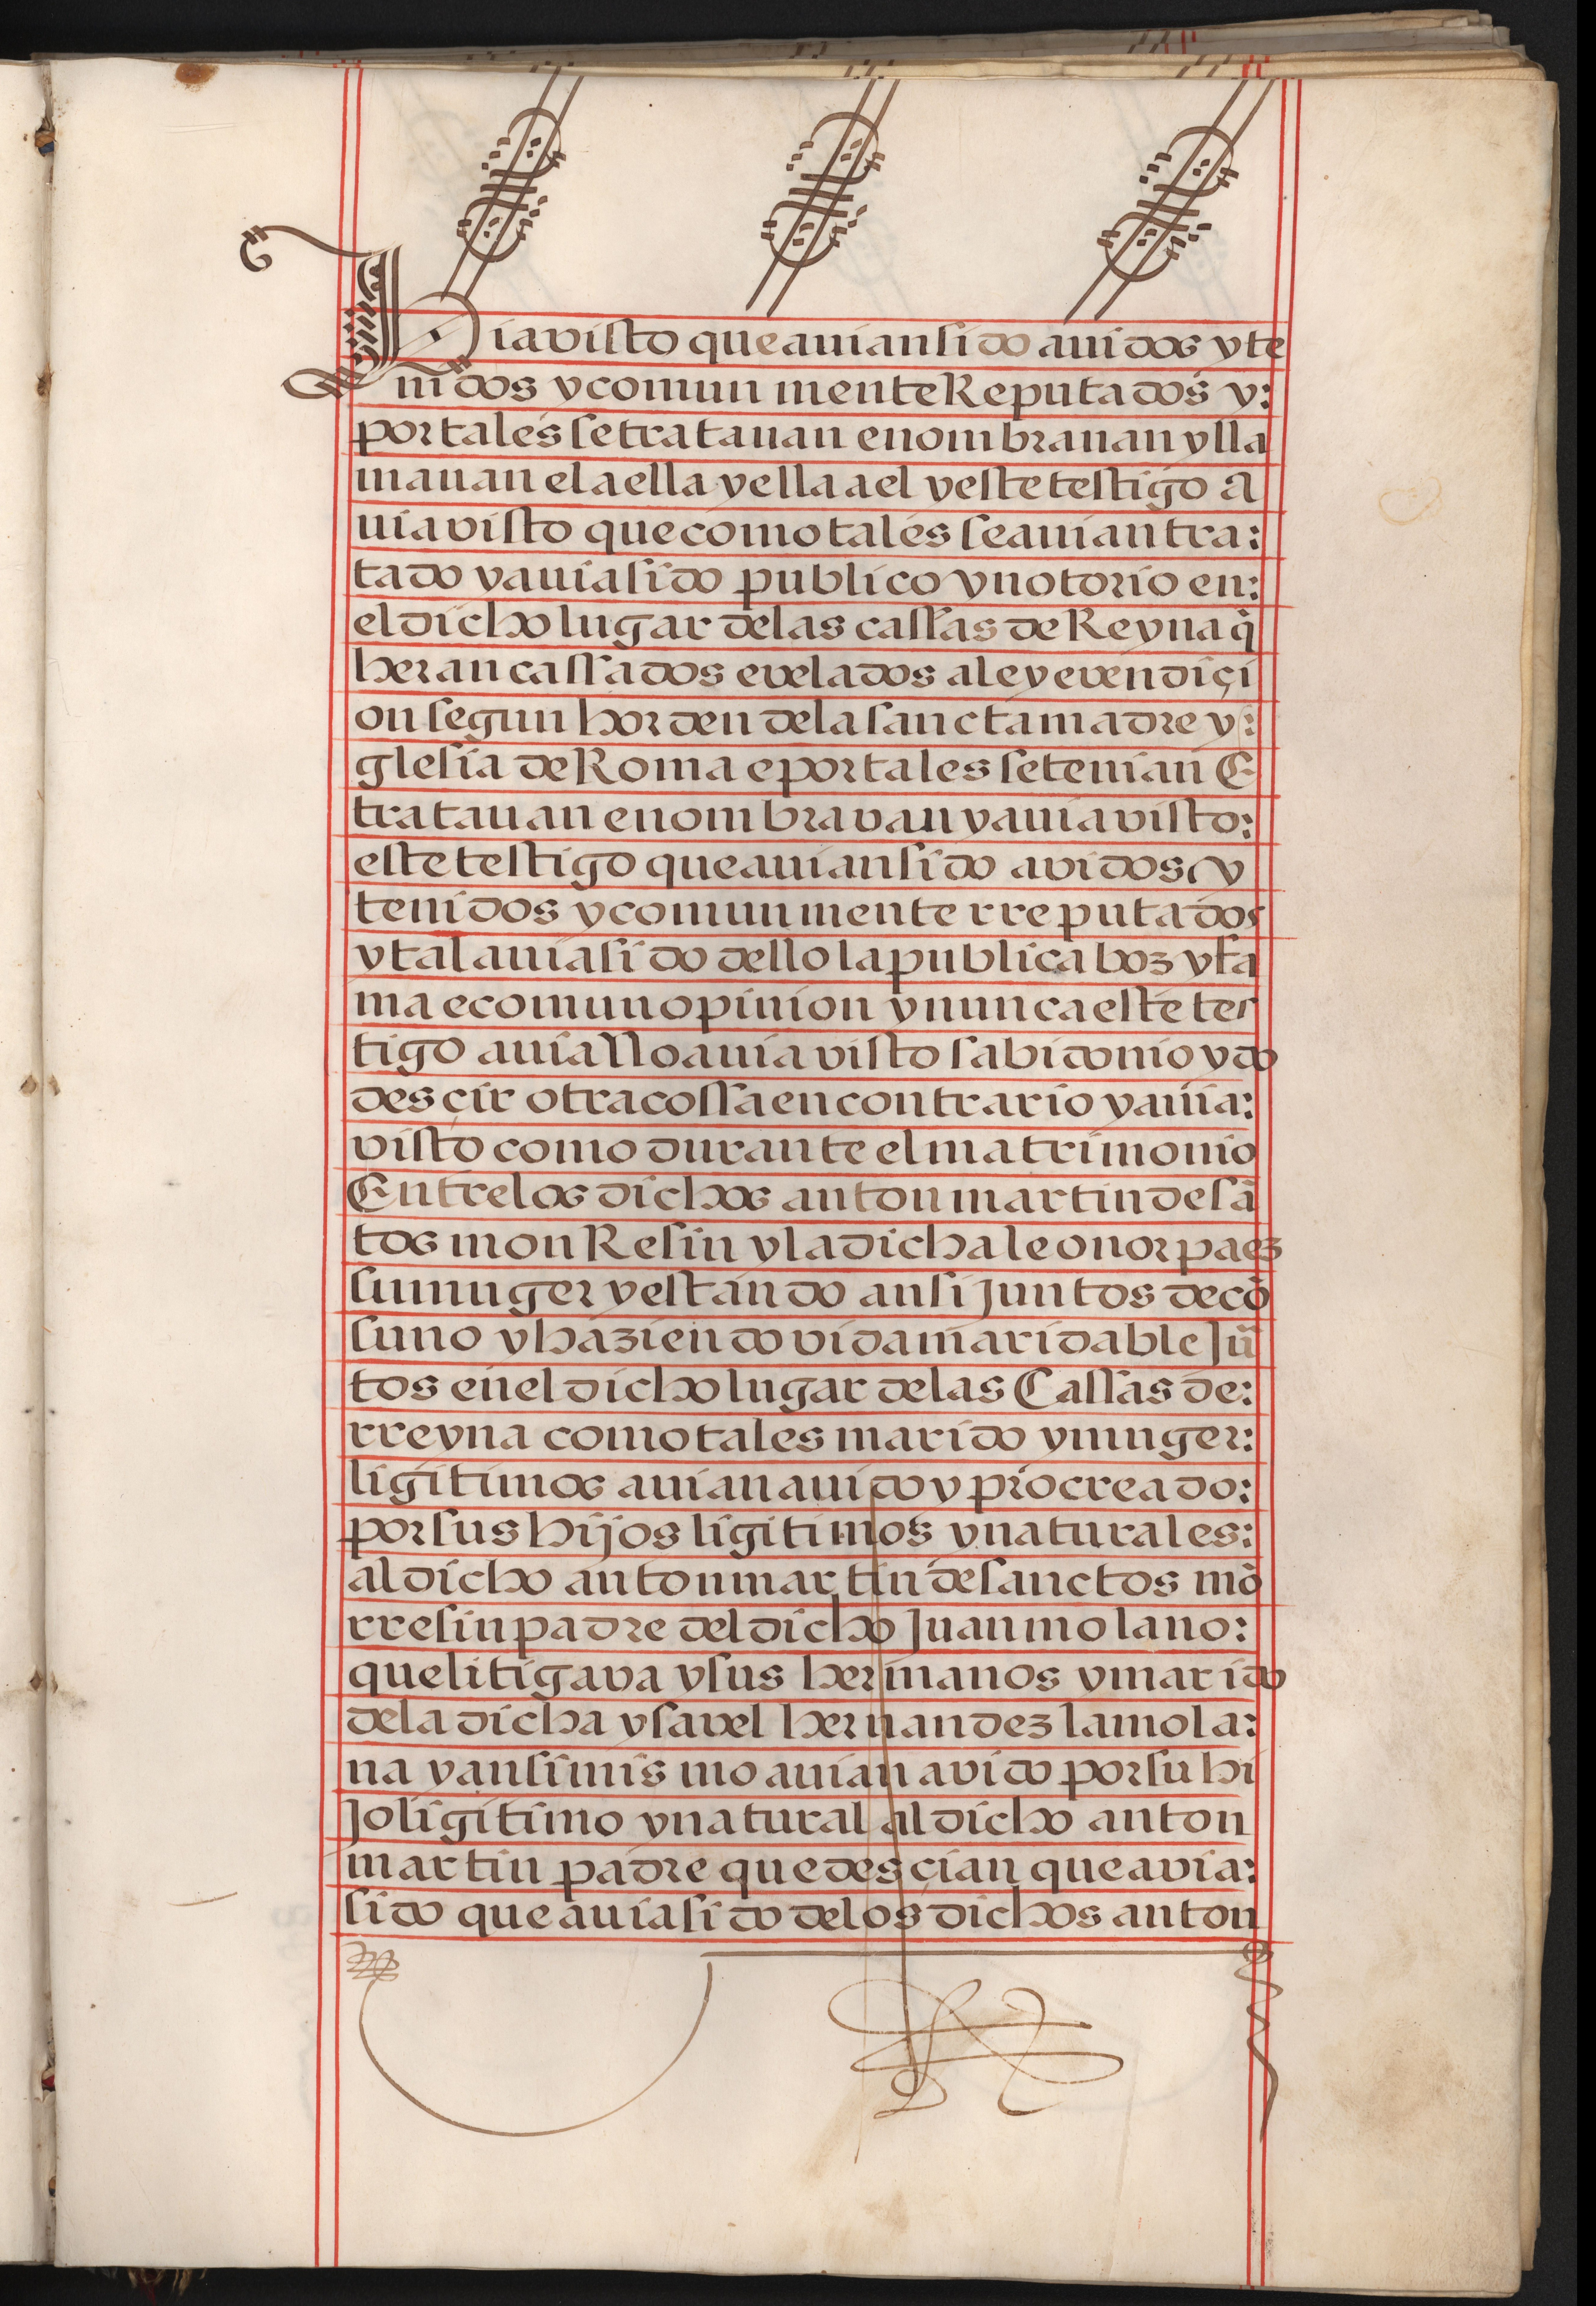 Via visto que auian sido auidos y te
nidos y comun mente Reputados y:
por tales se tratauan e nombrauan y lla
mauan el a ella y ella a el y este testigo a
uia visto que como tales se auian tra:
tado y auia sido publico y notorio en:
el dicho lugar de las cassas de Reyna q̃
heran cassados e velados a ley e vendiçi
on segun horden de la sancta madre y:
glesia de Roma e por tales se tenian E
tratauan e nombravan y auia visto:
este testigo que auian sido avidos y
tenidos y comun mente rreputados
y tal auia sido dello la publica boz y fa
ma e comun opinion y nunca este tes
tigo auia llo auia visto sabido nio ydo
desçir otra cossa en contrario y auia:
visto como durante el matrimonio
Entre los dichos anton martin de sã
tos mon Resin y la dicha leonor paez
su muger y estando ansi Juntos de cõ
suno y haziendo vida maridable Jũ
tos en el dicho lugar de las Cassas de:
rreyna como tales marido y muger:
ligitimos auian auido y procreado:
por sus hijos ligitimos y naturales:
al dicho anton martin de sanctos mõ
rresin padre del dicho Juan molano:
que litigava y sus hermanos y marido
de la dicha ysavel hernandez la mola:
na y ansimis mo auian avido por su hi
Jo ligitimo y natural al dicho anton
martin padre que desçian que avia:
sido que auia sido de los dichos anton